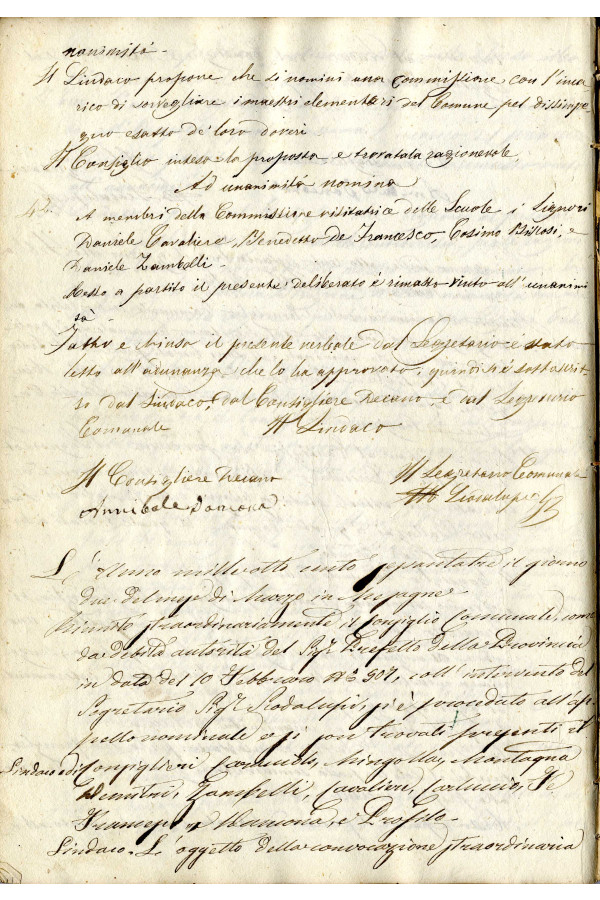 nanimità.
Il Sindaco propone che si nomini una commissione con l'inca
rico di sorvegliare i maestri elementari del Comune pel disimpe
gno esatto de' loro doveri.
Il Consiglio intesa la proposta e trovatala ragionevole,
Ad unanimità nomina
42. A membri della Commissione visitatrice delle Scuole i Signori
Daniele Cavaliere, Benedetto de Francesco, Cosimo e
Daniele Zambelli.
Messo a partito il presente deliberato è rimasto vinto all'unanimi
tà.
Fatto e chiuso il presente verbale dal Segretario è stato
letto all'adunanza che lo ha approvato, quindi si è sottoscrit
to dal Sindaco, dal Consigliere Decano, e dal Segretario
Comunale Il Sindaco
Il Consigliere Decano Il Segretario Comunale
Annibale
L'Anno mille otto cento settantatre il giorno
due del mese di Marzo in Mesagne
Riunito straordinariamente il Consiglio Comunale, con
da debita autorità del Sigr Prefetto della Provincia
in data del 10 Febbraro No 507, coll'intervento del
Segretario Sigr Scodalupi, si è proceduto all'ap
pello nominale e si son trovati presenti il
Sindaco e di Consiglieri Mingolla, Montagna
Demitri, Zambelli, Cavaliere, Carluccio, De
Francesco e Profilo.
Sindaco. L'oggetto della convocazione straordinaria